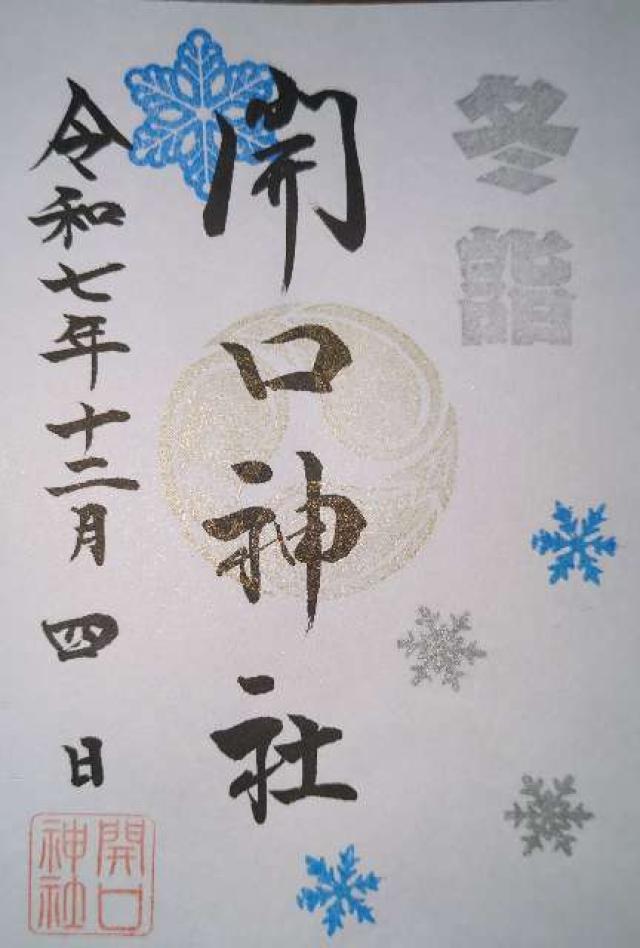 冬詣
開口神社
令和七年十二月四日
開口
神社